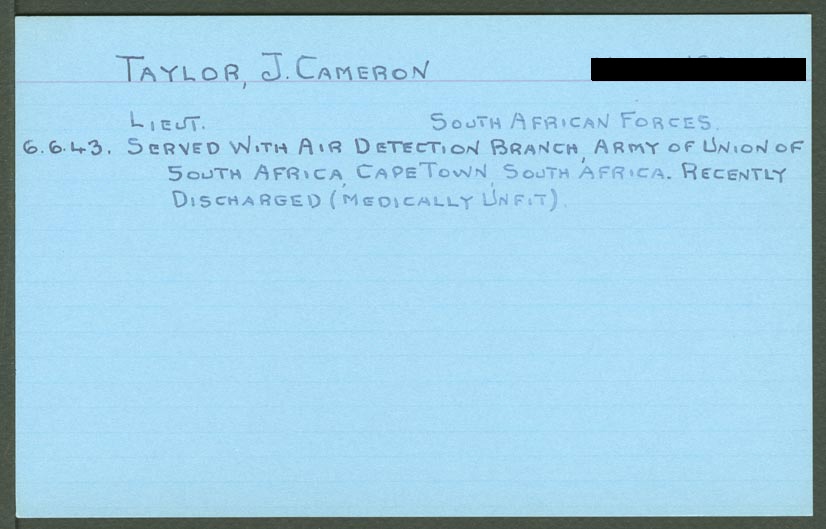 TAYLOR, J. CAMERON
LIEUT. SOUTH AFRICAN FORCES.
6.6.43. SERVED WITH AIR DETECTION BRANCH, ARMY OF UNION OF
SOUTH AFRICA, CAPETOWN, SOUTH AFRICA. RECENTLY
DISCHARGED (MEDICALLY UNFIT).